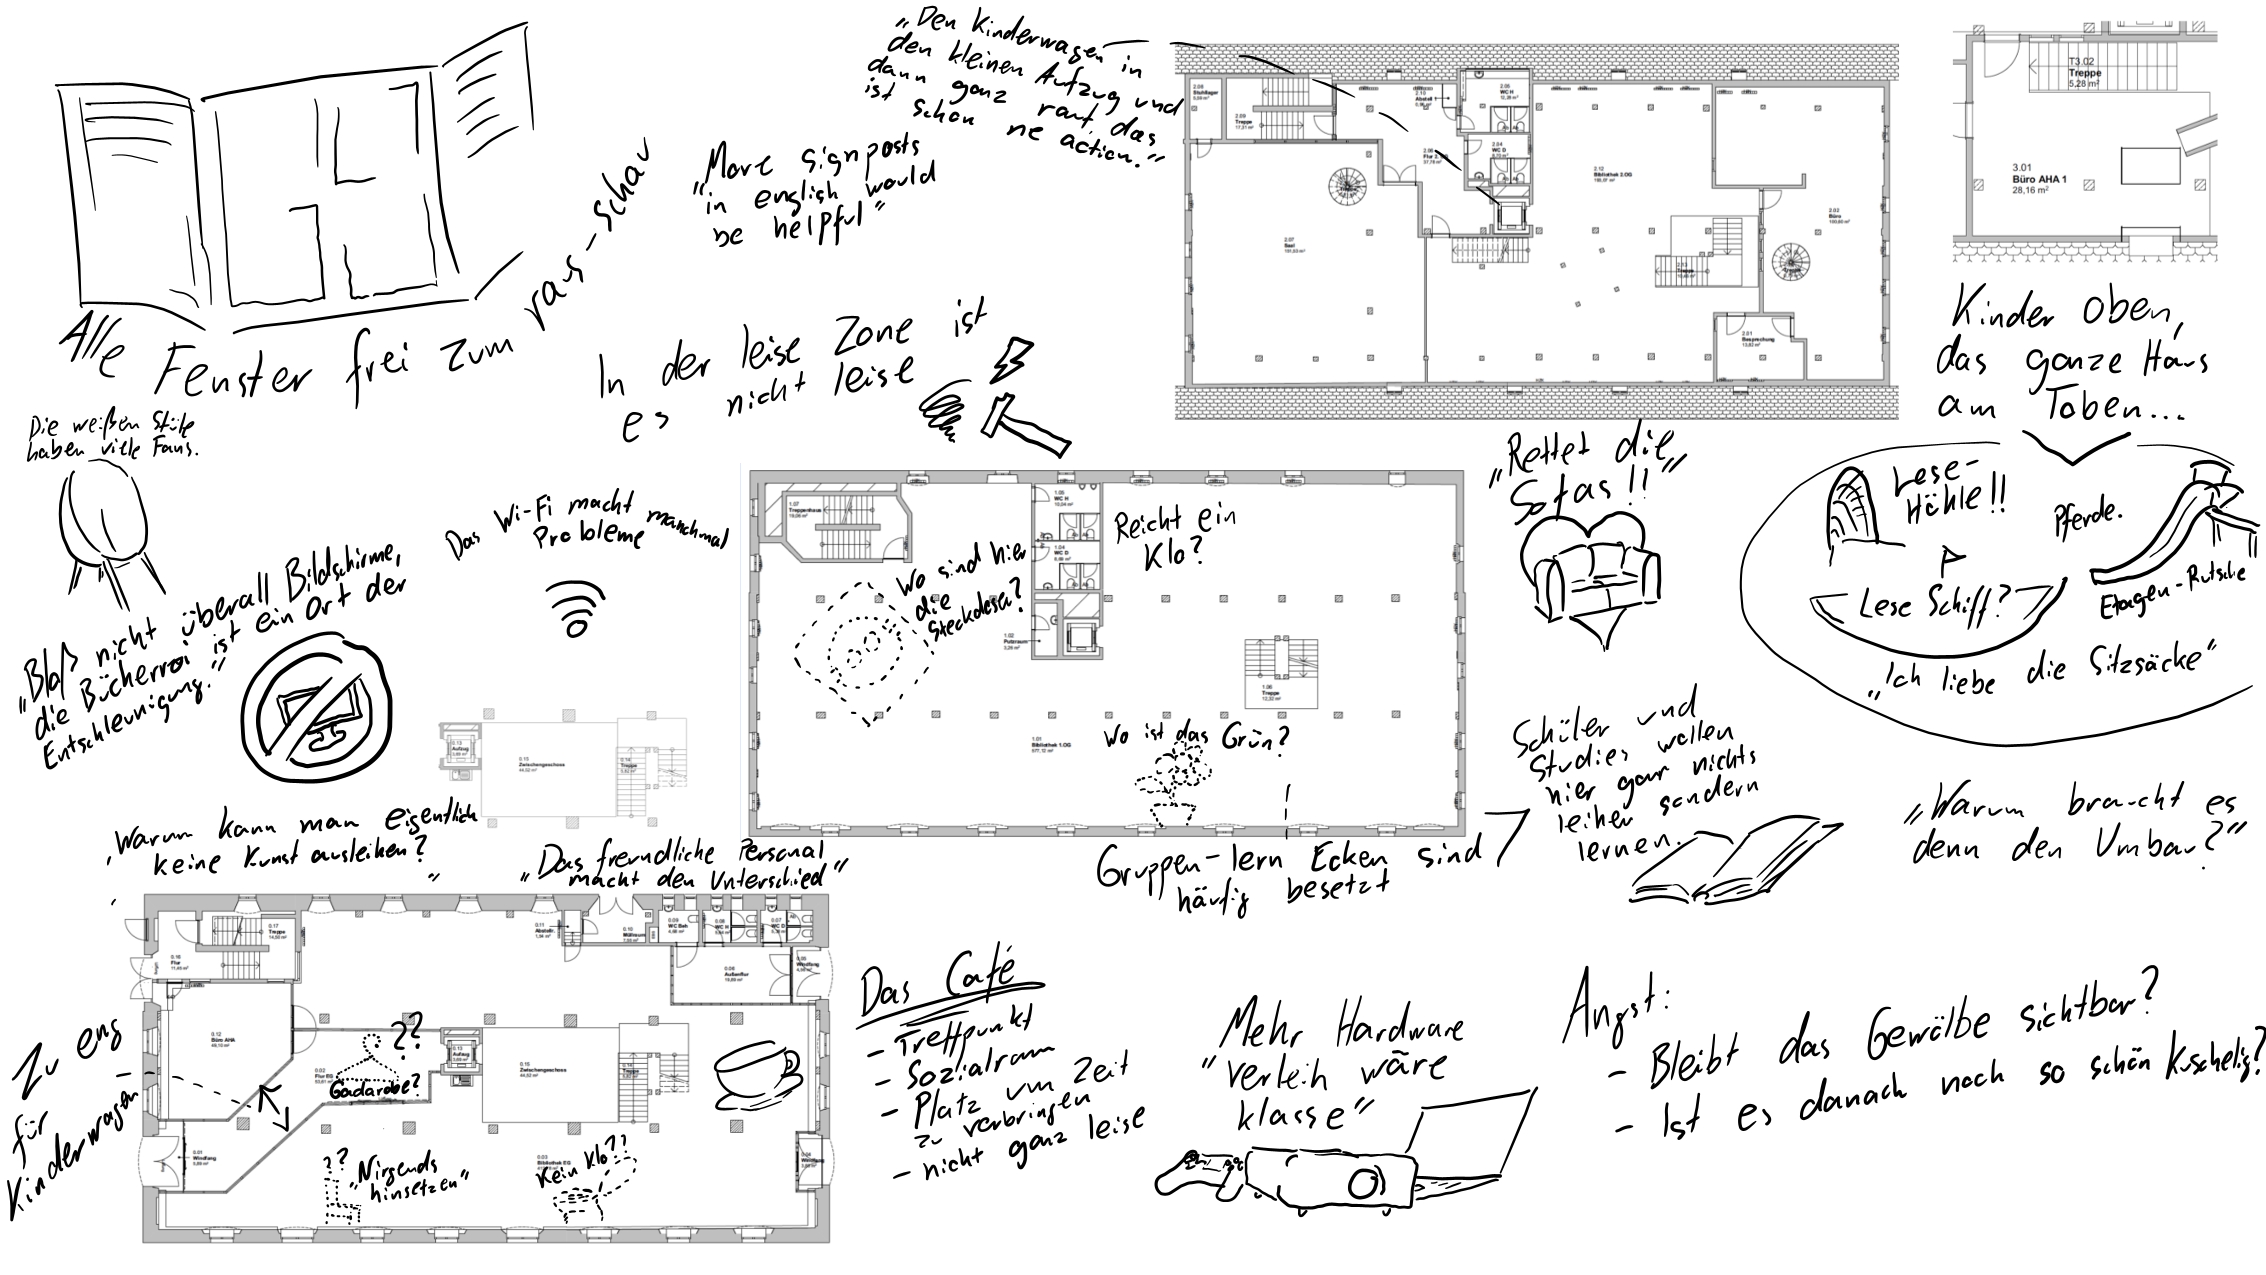 „Den Kinderwagen in
den kleinen Aufzug und
dann ganz rauf, das
ist schon ne action.“
„More signposts
in english would
be helpful“
Alle Fenster frei zum raus-schau
In der leise Zone ist
es nicht leise
Die weißen Stühle
haben viele Fans.
Das Wi-Fi macht manchmal
Probleme
„Bloß nicht überall Bildschirme,
die Bücherei ist ein Ort der
Entschleunigung.“
2.08
Stuhllager
2.09
Treppe
17,21 m²
2.10
Abstell
2.05
WC H
12,28 m²
2.04
WC D
2.06
Flur 2.
2.07
Saal
2.12
Bibliothek 2.OG
2.13
Treppe
2.02
Büro
2.01
Besprechung
T3.02
Treppe
5,28 m²
3.01
Büro AHA 1
28,16 m²
Kinder oben,
das ganze Haus
am Toben...
Lese-
Höhle!!
Pferde.
Lese Schiff?
Etagen-Rutsche
„Ich liebe die Sitzsäcke“
„Rettet die
Sofas!!“
1.07
Treppenhaus
1.05
WC H
10,04 m²
1.04
WC D
1.02
Putzraum
3,26 m²
1.06
Treppe
12,32 m²
1.01
Bibliothek 1.OG
577,12 m²
Reicht ein
Klo?
Wo sind hier
die
Steckdosen?
Wo ist das Grün?
Gruppen-lern Ecken sind
häufig besetzt
Schüler und
Studies wollen
hier gar nichts
leihen sondern
lernen.
„Warum braucht es
denn den Umbau?“
0.13
Aufzug
0.15
Zwischengeschoss
44,52 m²
0.14
Treppe
„Warum kann man eigentlich
keine Kunst ausleihen?“
„Das freundliche Personal
macht den Unterschied“
0.17
Treppe
14,50 m²
0.16
Flur
11,40 m²
0.11
Abstellr.
0.10
Müllraum
0.09
WC Beh
0.08
WC H
0.07
WC D
0.06
Außenflur
0.05
Windfang
0.12
Büro AHA
0.02
Flur EG
0.13
Aufzug
0.15
Zwischengeschoss
44,52 m²
0.14
Treppe
0.01
Windfang
0.03
Bibliothek EG
0.04
Windfang
Zu eng
für
Kinderwagen
??
Gadarobe?
??
„Nirgends
hinsetzen“
Kein Klo?!
Das Café
- Treffpunkt
- Sozialraum
- Platz um Zeit
zu verbringen
- nicht ganz leise
Mehr Hardware
„verleih wäre
klasse“
Angst:
- Bleibt das Gewölbe sichtbar?
- Ist es danach noch so schön kuschelig?